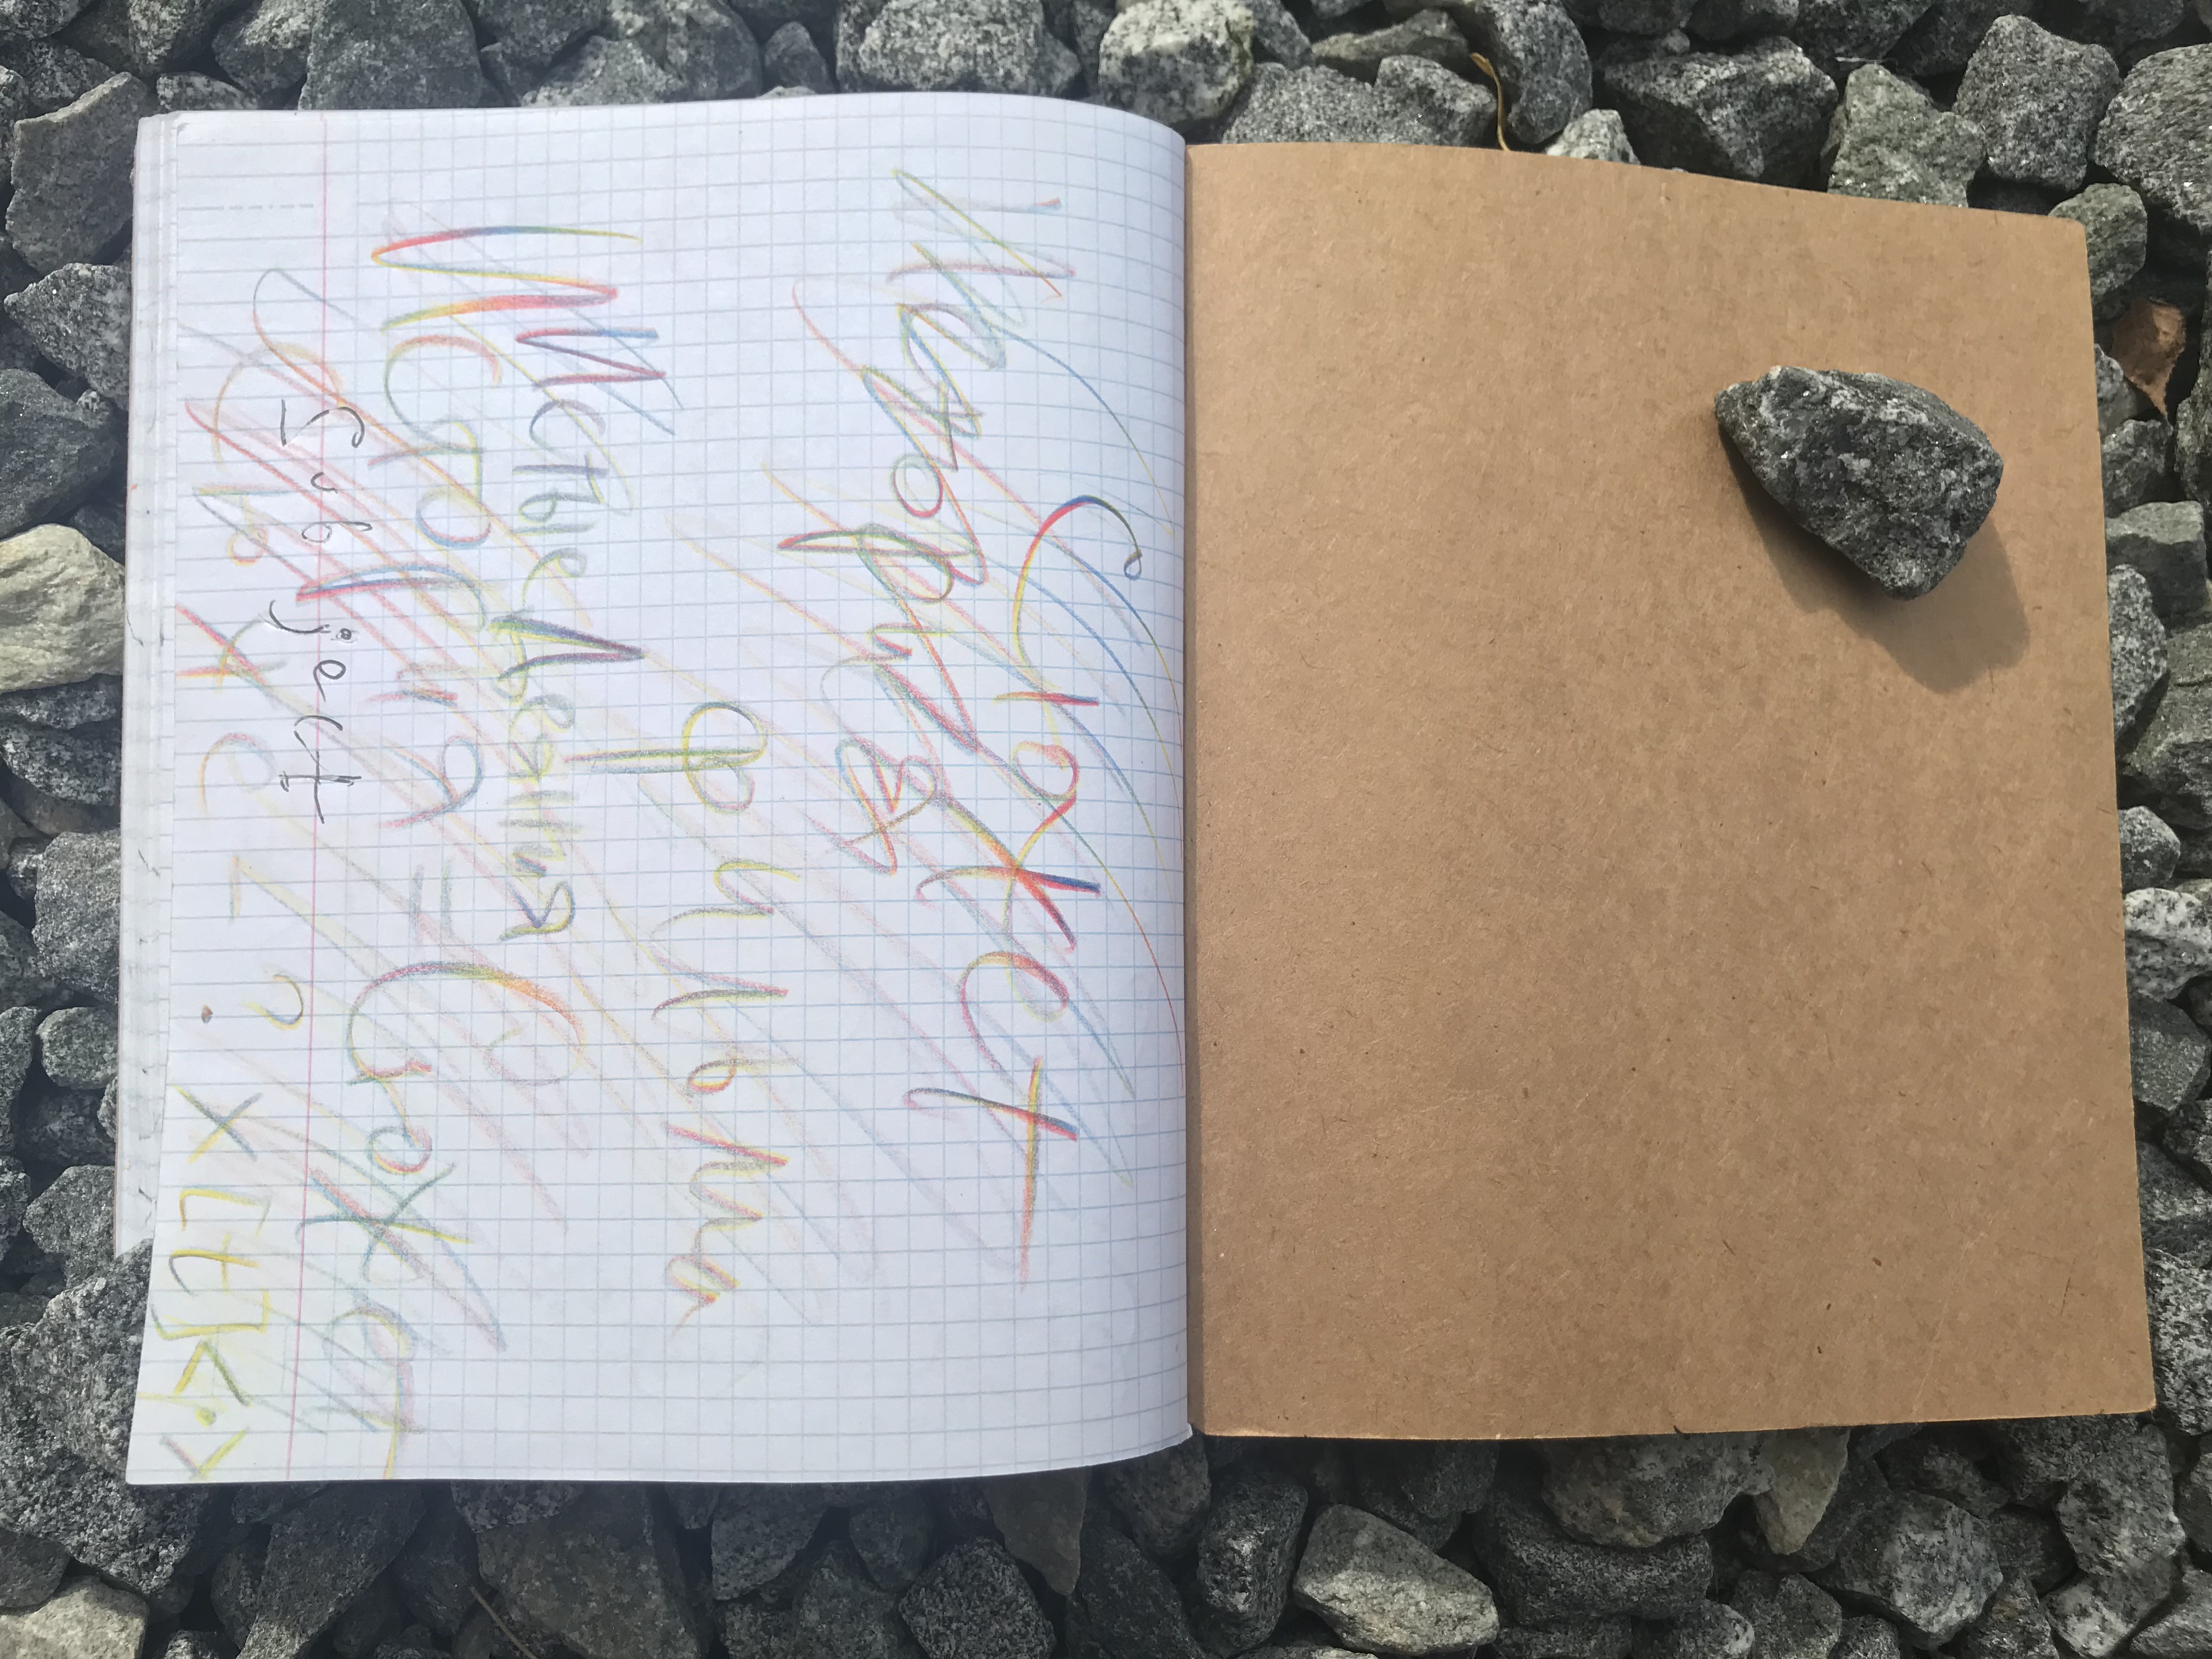 Сюжет
История
фильма
Истые Деяния
История = Сюжет
Subject
Сюжет ? x[t]<·>